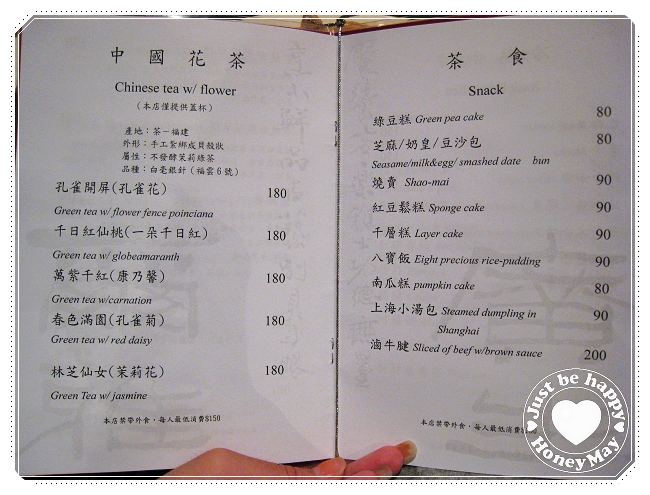 中國花茶
Chinese tea w/ flower
(本店僅提供蓋杯)
產地：茶－福建
外形：手工紮綁成貝殼狀
屬性：不發酵茉莉綠茶
品種：白毫銀針(福雲6號)
孔雀開屏(孔雀花) 180
Green tea w/ flower fence poinciana
千日紅仙桃(一朵千日紅) 180
Green tea w/ globeamaranth
萬紫千紅(康乃馨) 180
Green tea w/carnation
春色滿園(孔雀菊) 180
Green tea w/ red daisy
林芝仙女(茉莉花) 180
Green Tea w/ jasmine
本店禁帶外食，每人最低消費$150
茶食
Snack
綠豆糕 Green pea cake 80
芝麻/奶皇/豆沙包 80
Seasame/milk&egg/ smashed date bun
燒賣 Shao-mai 90
紅豆鬆糕 Sponge cake 90
千層糕 Layer cake 90
八寶飯 Eight precious rice-pudding 90
南瓜糕 pumpkin cake 80
上海小湯包 Steamed dumpling in 90
Shanghai
滷牛腱 Sliced of beef w/brown sauce 200
本店禁帶外食，每人最低消費
Just be happy
HoneyMay